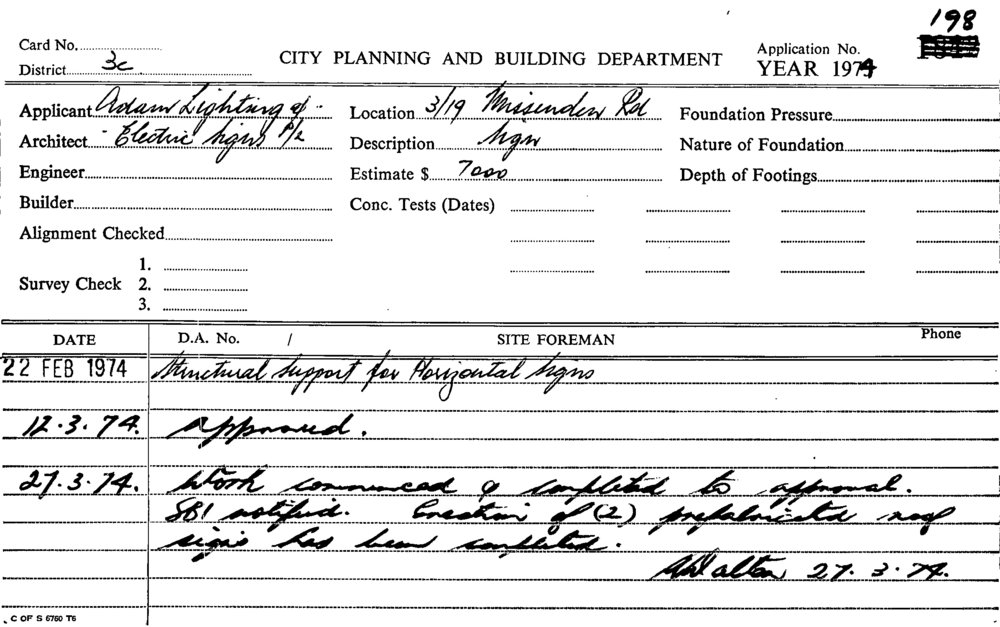 198
Card No.
CITY PLANNING AND BUILDING DEPARTMENT
Application No.
District 3c
YEAR 1974
Applicant Adam Lighting &
Location 3/19 Missenden Rd
Foundation Pressure
Architect Electric Signs P/L
Description Sign
Nature of Foundation
Engineer
Estimate $ 7000
Depth of Footings
Builder
Conc. Tests (Dates)
Alignment Checked
1.
Survey Check 2.
3.
DATE
D.A. No. /
SITE FOREMAN
Phone
22 FEB 1974 Structural Support for Horizontal Signs
12.3.74. Approved.
27.3.74. Work commenced & completed to approval.
SBI notified. Erection of (2) prefabricated roof
signs has been completed.
Walton 27.3.74.
C OF S 6760 T6